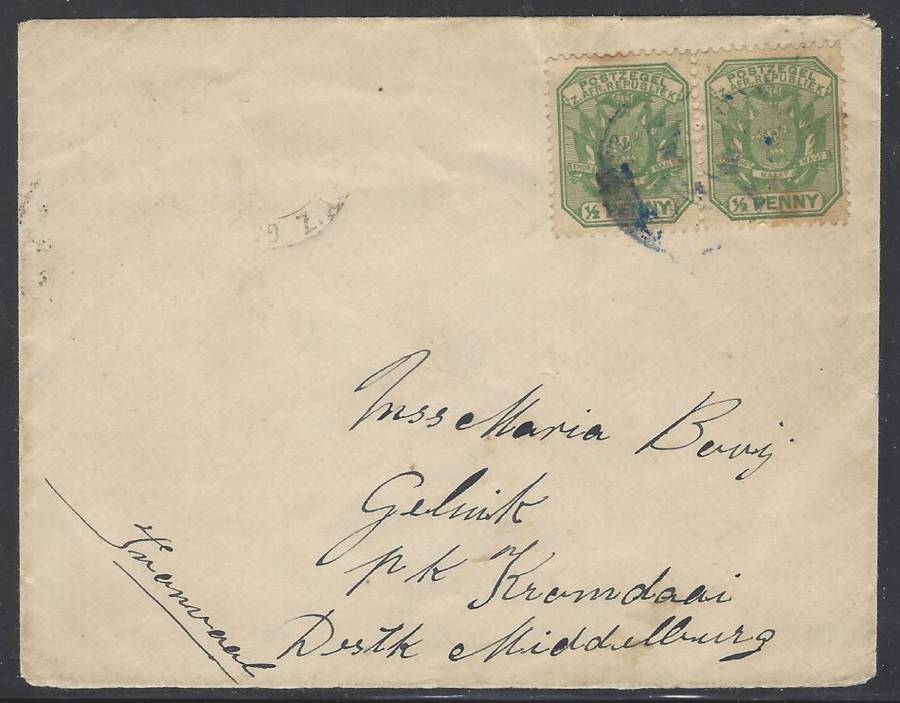 POSTZEGEL
Z. AFR. REPUBLIEK
MAGT
½ PENNY
POSTZEGEL
Z. AFR. REPUBLIEK
MAAKT MAGT
½ PENNY
Z.
Miss Maria
Geluik
pk Kromdaai
Destk Middelburg
Transvaal